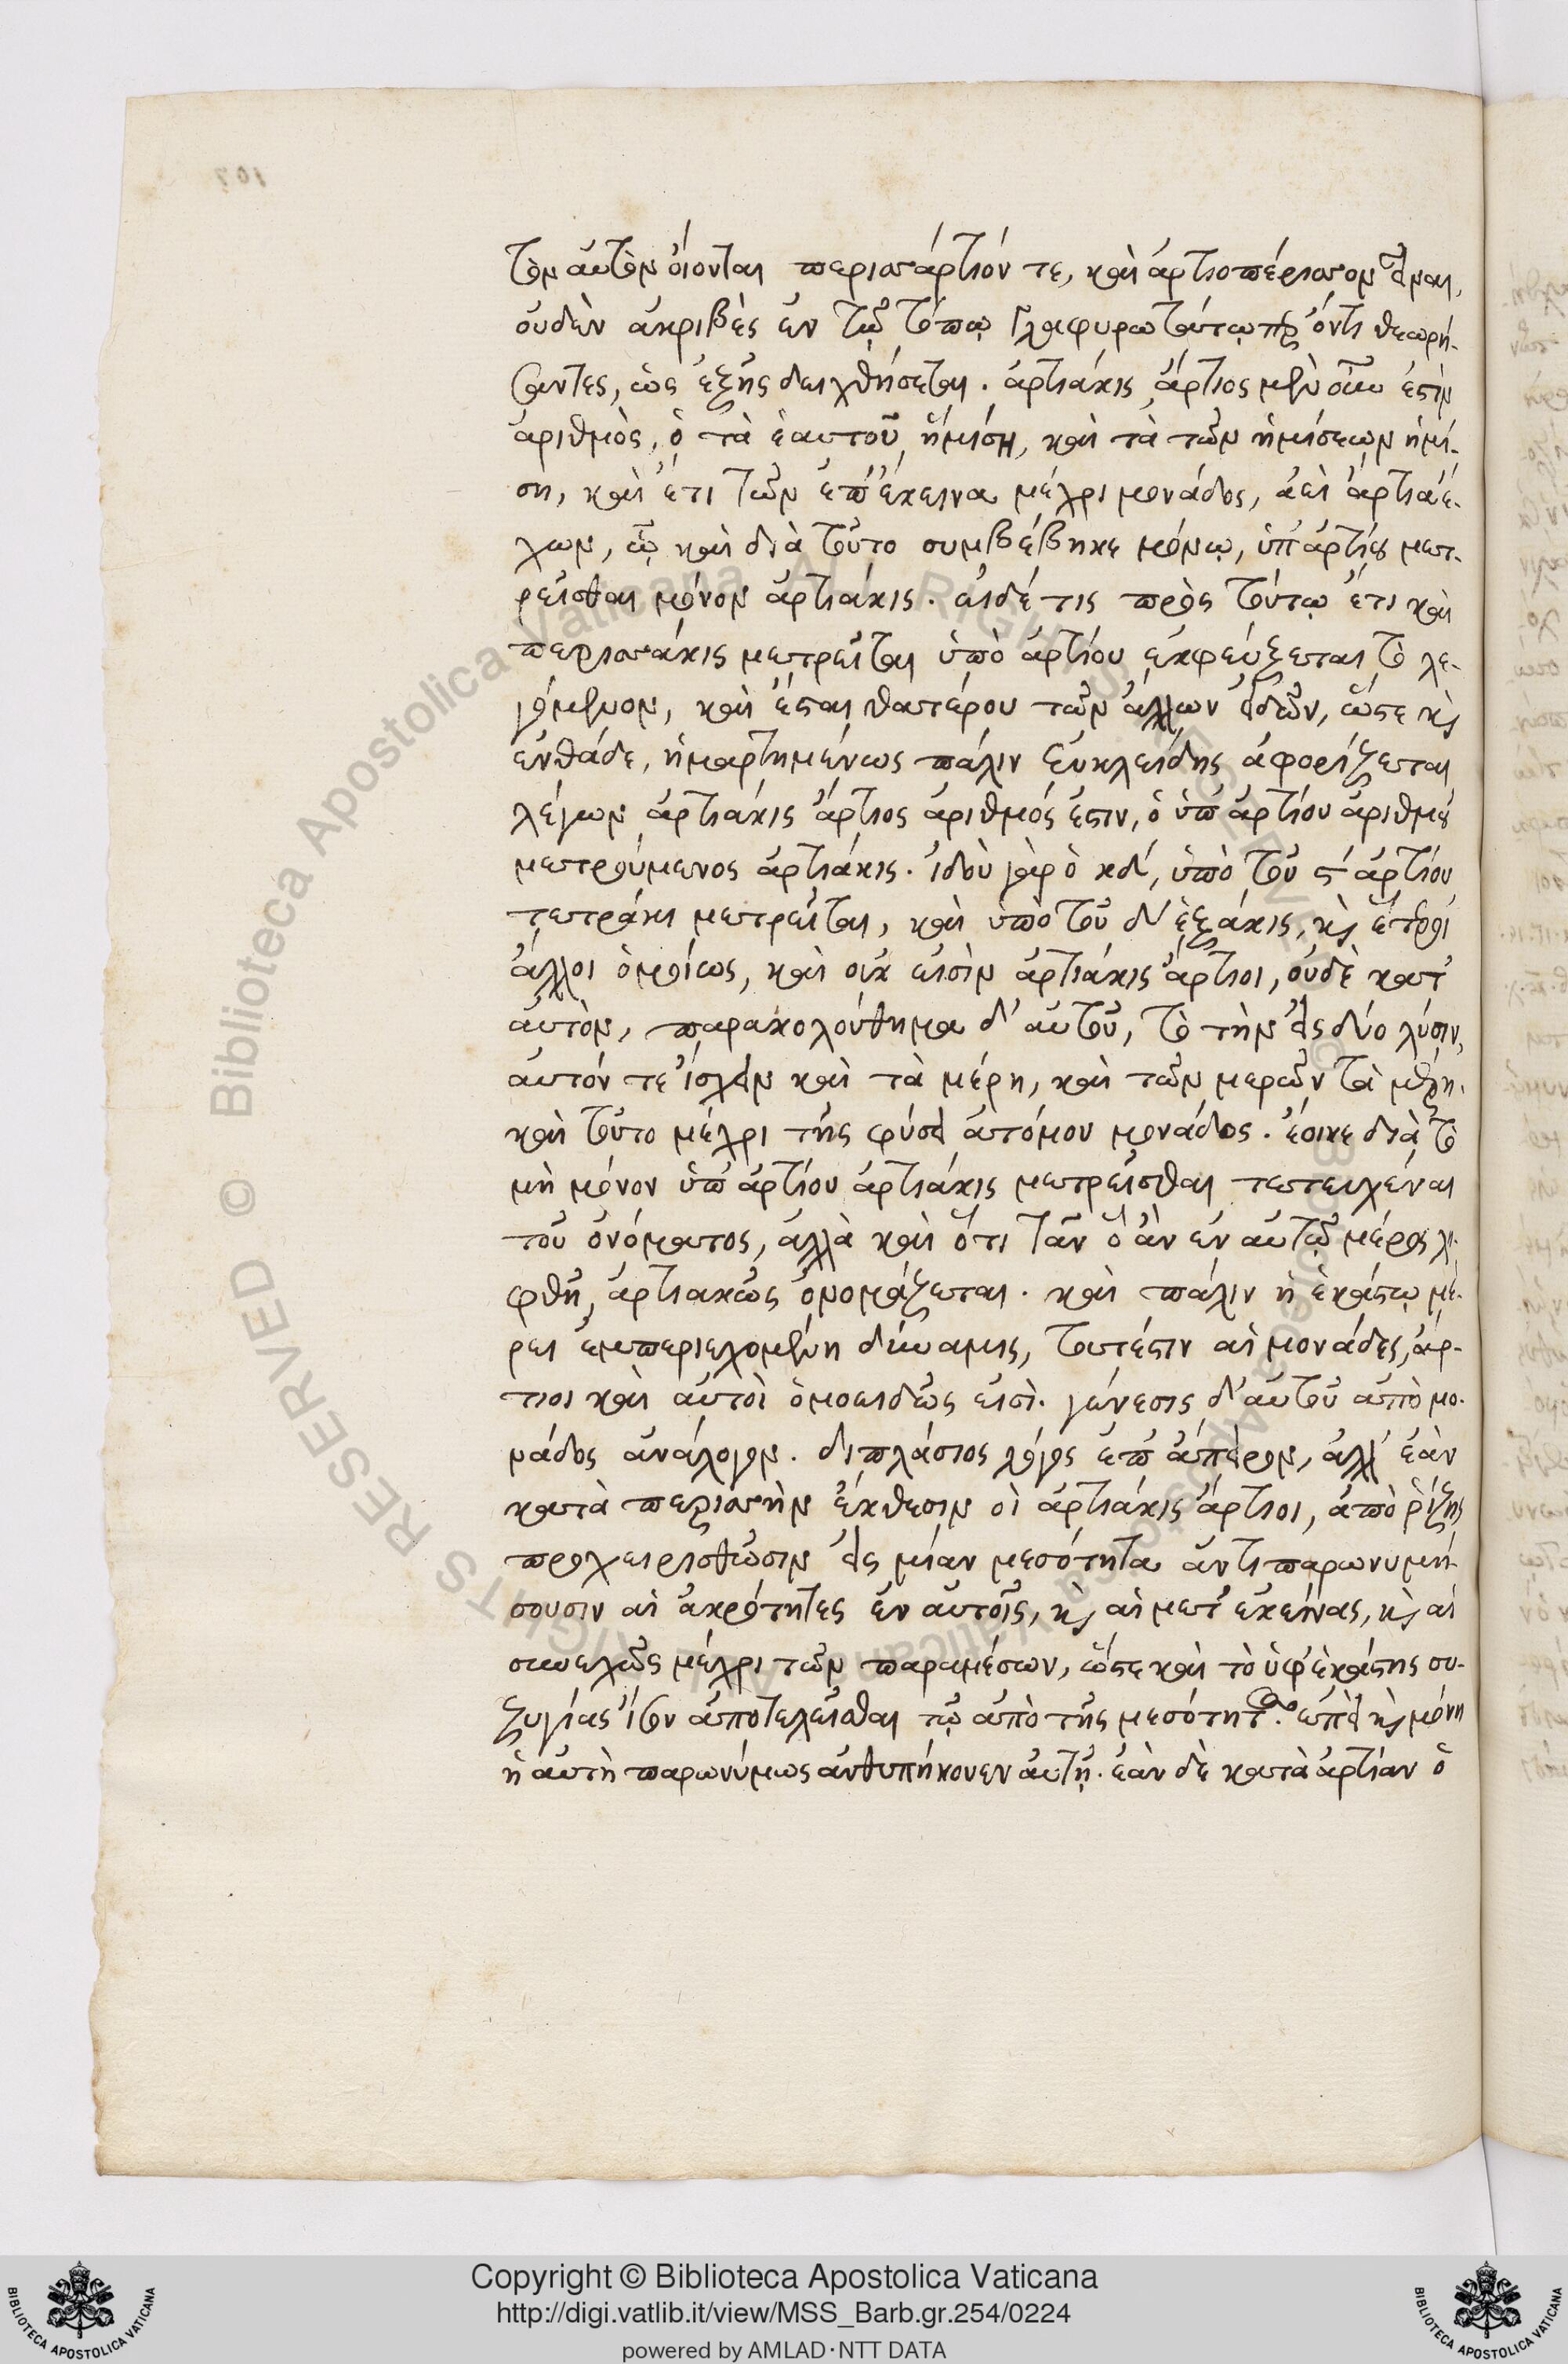 τὸν αὐτὸν οἴονται περισσάρτιόν τε, καὶ ἀρτιοπέρισσον εἶναι,
οὐδὲν ἀκριβὲς ἐν τῷ τόπῳ γλαφυρῷ τούτῳπερ ὄντι θεωρή-
σαντες, ὡς ἑξῆς δειχθήσεται. ἀρτιάκις ἄρτιος μὲν οὖν ἐστὶν
ἀριθμὸς, ὁ τὰ ἑαυτοῦ ἡμίση, καὶ τὰ τῶν ἡμίσεων ἡμί-
ση, καὶ ἔτι τῶν ἐπ' ἔκεινα μέχρι μονάδος, ἀεὶ ἄρτια ἔ-
χων, ᾧ καὶ διὰ τοῦτο συμβέβηκε μόνῳ, ὑπ' ἀρτίου μετ-
ρεῖσθαι μόνον ἀρτιάκις. εἰδέ τις πρὸς τούτῳ ἔτι καὶ
περισσάκις μετρεῖται ὑπὸ ἀρτίου ἐκφεύξεται τὸ λε-
γόμενον, καὶ ἔσται θατέρου τῶν ἄλλων εἰδῶν, ὥστε καὶ
ἐνθάδε, ἡμαρτημένως πάλιν Εὐκλείδης ἀφορίζεται
λέγων ἀρτιάκις ἄρτιος ἀριθμός ἐστιν, ὁ ὑπ' ἀρτίου ἀριθμοῦ
μετρούμενος ἀρτιάκις. ἰδοὺ γὰρ ὁ κδ', ὑπὸ τοῦ ϛ' ἀρτίου
τετράκι μετρεῖται, καὶ ὑπὸ τοῦ δ' ἑξάκις, καὶ ἕτεροι
ἄλλοι ὁμοίως, καὶ οὐκ εἰσὶν ἀρτιάκις ἄρτιοι, οὐδὲ κατ'
αὐτὸν, παρακολούθημα δ' αὐτοῦ, τὸ τὴν εἰς δύο λύσιν,
αὐτόν τε ἴσχειν καὶ τὰ μέρη, καὶ τῶν μερῶν τὰ μέρη.
καὶ τοῦτο μέχρι τῆς φύσει ἀτόμου μονάδος. ἔοικε διὰ τὸ
μὴ μόνον ὑπ' ἀρτίου ἀρτιάκις μετρεῖσθαι τετευχέναι
τοῦ ὀνόματος, ἀλλὰ καὶ ὅτι πᾶν ὃ ἂν ἐν αὐτῷ μέρος λη-
φθῇ, ἀρτιακῶς ὀνομάζεται. καὶ πάλιν ἡ ἑκάστῳ μέ-
ρει ἐμπεριεχομένη δύναμις, τουτέστιν αἱ μονάδες, ἄρ-
τιοι καὶ αὐτοὶ ὁμοειδῶς εἰσὶ. γένεσις δ' αὐτοῦ ἀπὸ μο-
νάδος ἀνάλογον. διπλάσιος λόγος ἐπ' ἄπειρον, ἀλλ' ἐὰν
κατὰ περισσὴν ἔκθεσιν οἱ ἀρτιάκις ἄρτιοι, ἀπὸ ῥίζης
προχειρισθῶσιν εἰς μίαν μεσότητα ἀντιπαρωνυμή-
σουσιν αἱ ἀκρότητες ἐν αὐτοῖς, καὶ αἱ μετ' ἐκείνας, καὶ αἱ
συνεχῶς μέχρι τῶν παραμέσων, ὥστε καὶ τὸ ὑφ' ἑκάστης συ-
ζυγίας ἴσον ἀποτελεῖσθαι τῷ ἀπὸ τῆς μεσότητος. ἐπεὶ καὶ μόνη
ἡ αὐτὴ παρωνύμως ἀνθυπήκουεν αὐτῇ. ἐὰν δὲ κατὰ ἀρτίαν ὁ
Copyright © Biblioteca Apostolica Vaticana
http://digi.vatlib.it/view/MSS_Barb.gr.254/0224
powered by AMLAD·NTT DATA